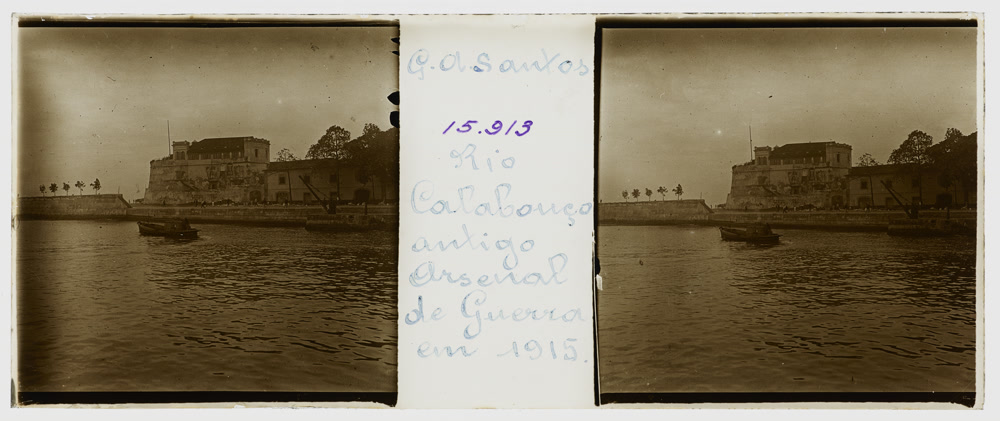 G. A. Santos
15.913
Rio
Calabouço
antigo
Arsenal
de Guerra
em 1915.